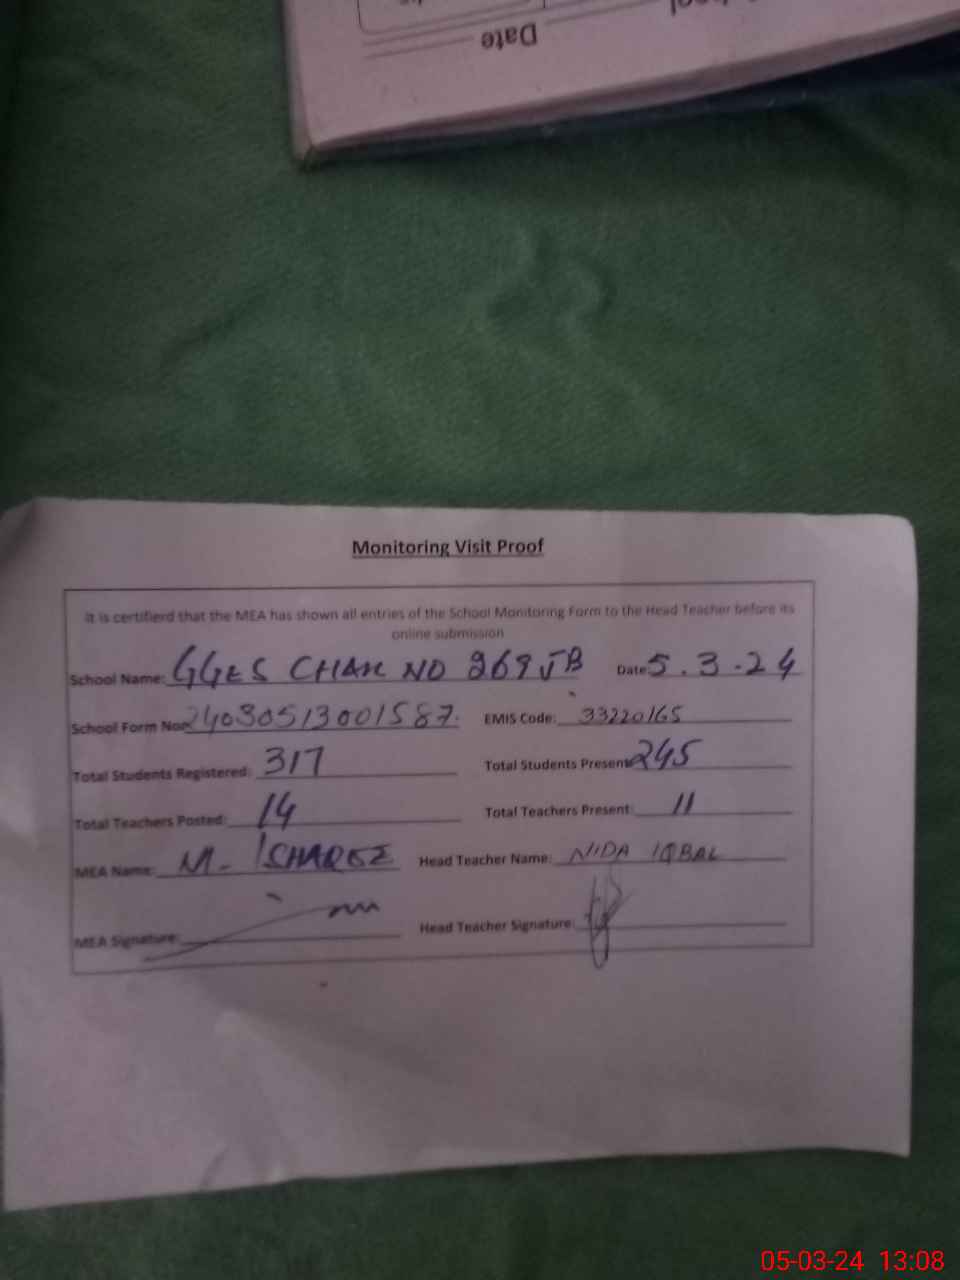 Date
Monitoring Visit Proof
It is certifierd that the MEA has shown all entries of the School Monitoring Form to the Head Teacher before its
online submission
School Name: GGES CHAK NO 269 JB Date 5.3.24
School Form No: 24030513001587. EMIS Code: 33220165
Total Students Registered: 317 Total Students Present: 245
Total Teachers Posted: 14 Total Teachers Present: 11
MEA Name: M. Head Teacher Name: NIDA IQBAL
MEA Signature: Head Teacher Signature:
05-03-24 13:08